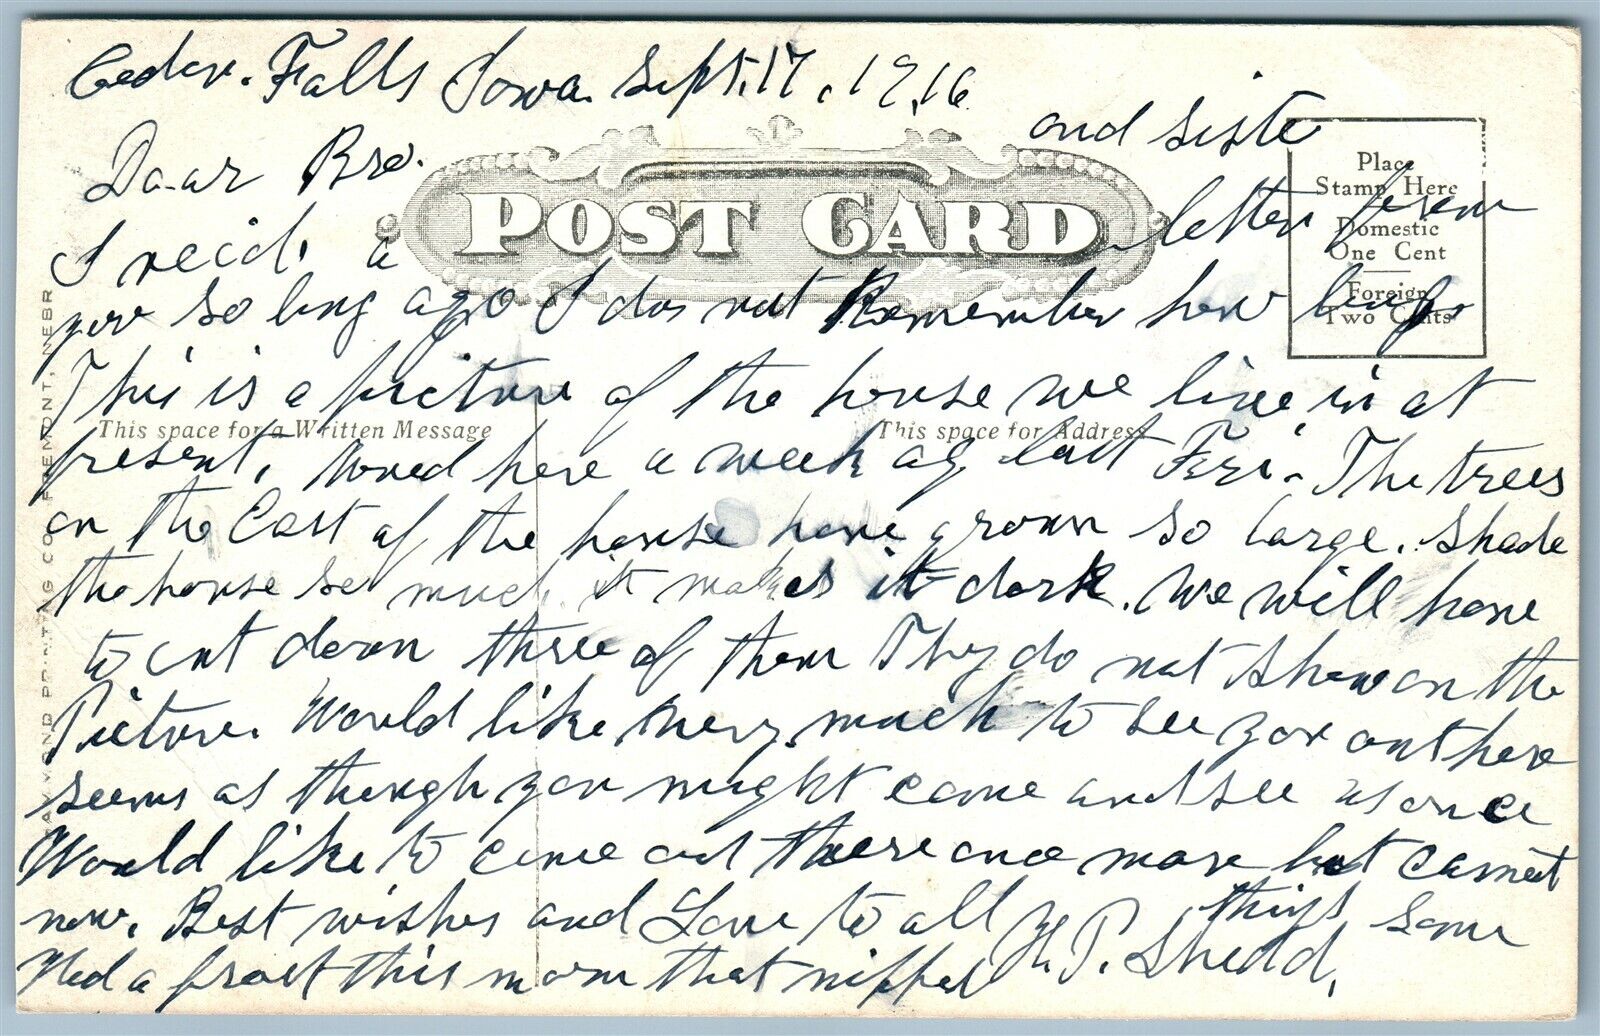 Cedar. Falls Iowa. Sept. 17, 1916
Daar Bro. and siste
POST CARD
Place
Stamp Here
Domestic
One Cent
Foreign
Two Cents
I recid. a letter from
you so long ago I dos not Remember how long
This is a picture of the house we live in at
This space for a Written Message
This space for Address
present. Moved here a week ago last Fri. The trees
on the East of the house have grown so large. Shade
the house so much it makes it dark. We will have
to cut down three of them They do not show on the
Picture. Would like very much to see you out here
seems as though you might come and see us once
Would like to come out there once more but cannot
now. Best wishes and Love to all H. P. Shedd.
Hed a frost this morn that nipped things some
FREMONT, NEBR
PRINTING CO.